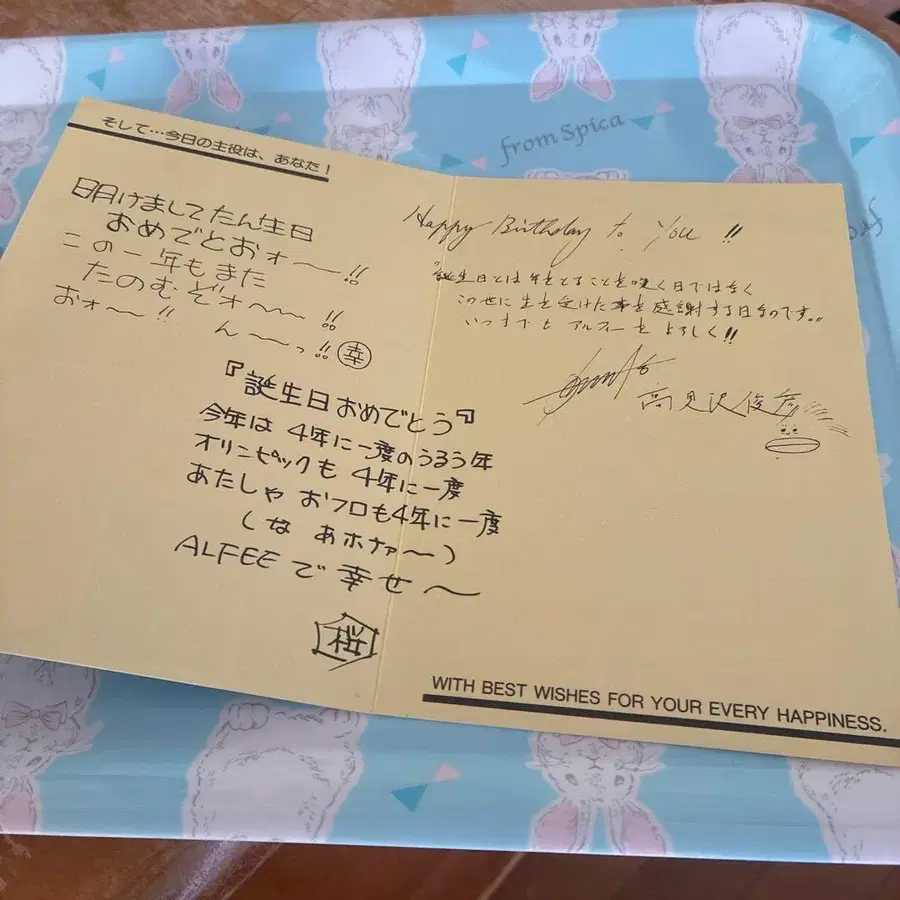 そして…今日の主役は、あなた!
明けましてたん生日
おめでとおォ〜!!
この一年もまた
たのむぞォ〜!!
おォ〜!! ん〜っ!! 幸
『誕生日おめでとう』
今年は 4年に一度のうるう年
オリンピックも 4年に一度
あたしゃ おフロも4年に一度
(な あホナァ〜)
ALFEE で 幸せ〜
桜
Happy Birthday to You !!
"誕生日とは年をとることを嘆く日ではなく
この世に生を受けた事を感謝する日なのです。"
いつまでも アルフィーを よろしく!!
高見沢俊彦
WITH BEST WISHES FOR YOUR EVERY HAPPINESS.
from Spica
fro